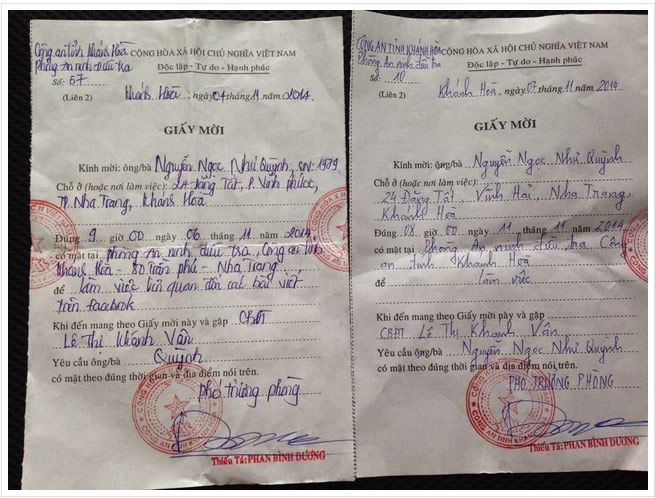 Công an tỉnh Khánh Hòa CỘNG HÒA XÃ HỘI CHỦ NGHĨA VIỆT NAM
Phòng an ninh điều tra Độc lập - Tự do - Hạnh phúc
Số: 57
(Liên 2) Khánh Hòa, ngày 04 tháng 11 năm 2014.
GIẤY MỜI
Kính mời: ông/bà Nguyễn Ngọc Như Quỳnh, SN: 1979
Chỗ ở (hoặc nơi làm việc): Đặng Tất, P. Vĩnh Phước,
TP Nha Trang, Khánh Hòa
Đúng 9 giờ 00 ngày 06 tháng 11 năm 2014
có mặt tại phòng an ninh điều tra, Công an tỉnh
Khánh Hòa - 80 Trần Phú - Nha Trang
để làm việc liên quan đến các bài viết
trên facebook
Khi đến mang theo Giấy mời này và gặp CBĐT
Lê Thị Khánh Vân
Yêu cầu ông/bà Quỳnh
có mặt theo đúng thời gian và địa điểm nói trên.
phó trưởng phòng
CÔNG AN TỈNH KHÁNH
Thiếu Tá: PHAN BÌNH DƯƠNG
CÔNG AN TỈNH KHÁNH HÒA CỘNG HÒA XÃ HỘI CHỦ NGHĨA VIỆT NAM
Phòng An ninh điều tra Độc lập - Tự do - Hạnh phúc
Số: 10
(Liên 2) Khánh Hòa, ngày 07 tháng 11 năm 2014
GIẤY MỜI
Kính mời: ông/bà Nguyễn Ngọc Như Quỳnh
Chỗ ở (hoặc nơi làm việc):
24 Đặng Tất, Vĩnh Hải, Nha Trang,
Khánh Hòa
Đúng 08 giờ 00 ngày 11 tháng 11 năm 2014
có mặt tại Phòng An ninh điều tra Công
an tỉnh Khánh Hòa
để làm việc
Khi đến mang theo Giấy mời này và gặp
CBĐT Lê Thị Khánh Vân
Yêu cầu ông/bà Nguyễn Ngọc Như Quỳnh
có mặt theo đúng thời gian và địa điểm nói trên.
PHÓ TRƯỞNG PHÒNG
CÔNG AN TỈNH KHÁNH
Thiếu Tá: PHAN BÌNH DƯƠNG